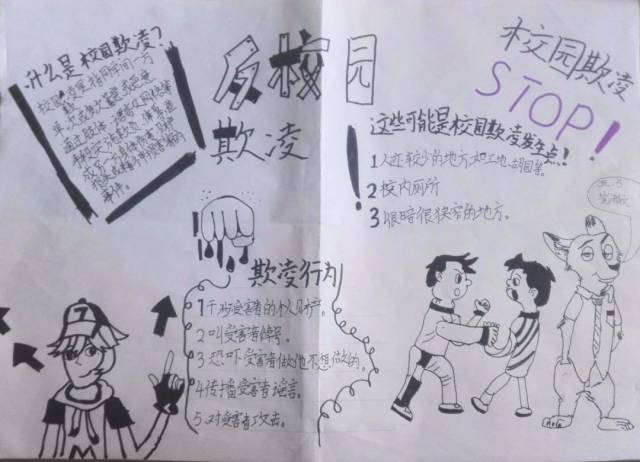 什么是校园欺凌?
校园欺凌是指同学间一方
单次或多次蓄意或恶
通过肢体、语言及网络等
手段实施欺负、侮辱造
成另一方身体伤害、财产
损失或精神损害等的
事件。
反校园
欺凌
校园欺凌
STOP!
这些可能是校园欺凌发生点!
1人还较少的地方,如工地、胡同等。
2校内厕所
3很暗很狭窄的地方。
五.3
欺凌行为
1干涉受害者的个人财产。
2叫受害者绰号。
3恐吓受害者做他不想做的。
4传播受害者谣言。
5.对受害者攻击。
7